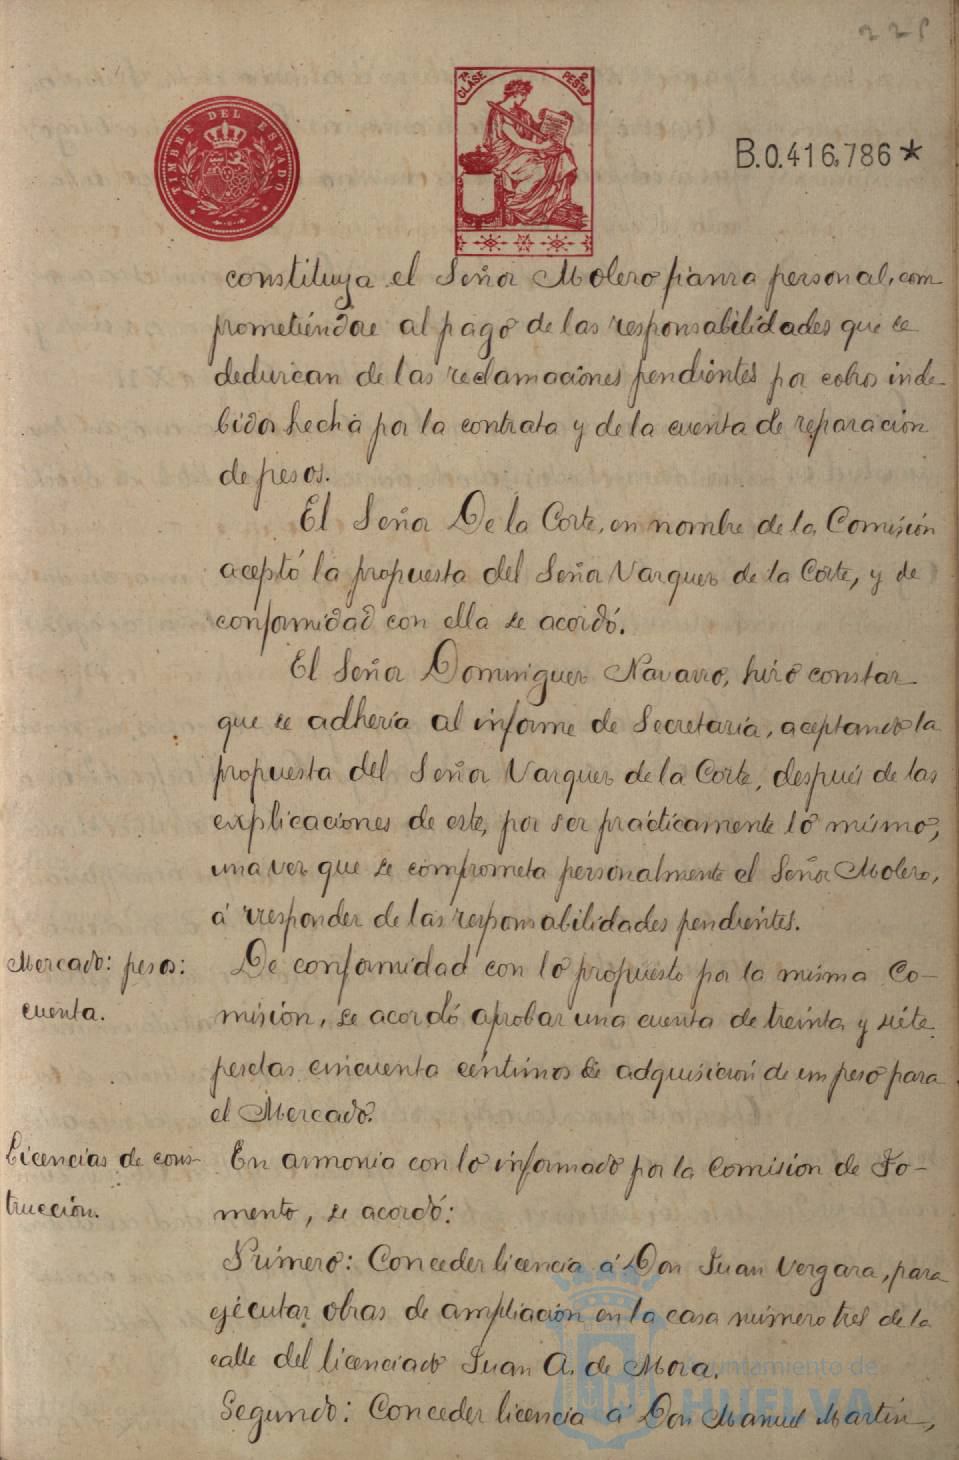 225
TIMBRE DEL ESTADO
7ª CLASE 2 PESTAS
B.0.416.786*
constituya el Señor Molero fianza personal, com
prometiéndose al pago de las responsabilidades que se
deduzcan de las reclamaciones pendientes por cobros inde-
bidos hecha por la contrata y de la cuenta de reparación
de pesos.
El Señor De la Corte, en nombre de la Comisión
aceptó la propuesta del Señor Vazquez de la Corte, y de
conformidad con ella se acordó.
El Señor Dominguez Navarro, hizo constar
que se adhería al informe de Secretaría, aceptando la
propuesta del Señor Vazquez de la Corte, después de las
explicaciones de este, por ser prácticamente lo mismo,
una vez que se comprometa personalmente el Señor Molero,
á responder de las responsabilidades pendientes.
Mercado: pesos:
cuenta.
De conformidad con lo propuesto por la misma Co-
misión, se acordó aprobar una cuenta de treinta y siete
pesetas cincuenta céntimos de adquisición de un peso para
el Mercado.
Licencias de cons-
trucción.
En armonia con lo informado por la Comision de Fo-
mento, se acordó:
Primero: Conceder licencia á Don Juan Vergara, para
ejécutar obras de ampliación en la casa número tres de la
calle del licenciado Juan A. de Mora.
Segundo: Conceder licencia á Don Manuel Martín,
Ayuntamiento de
HUELVA